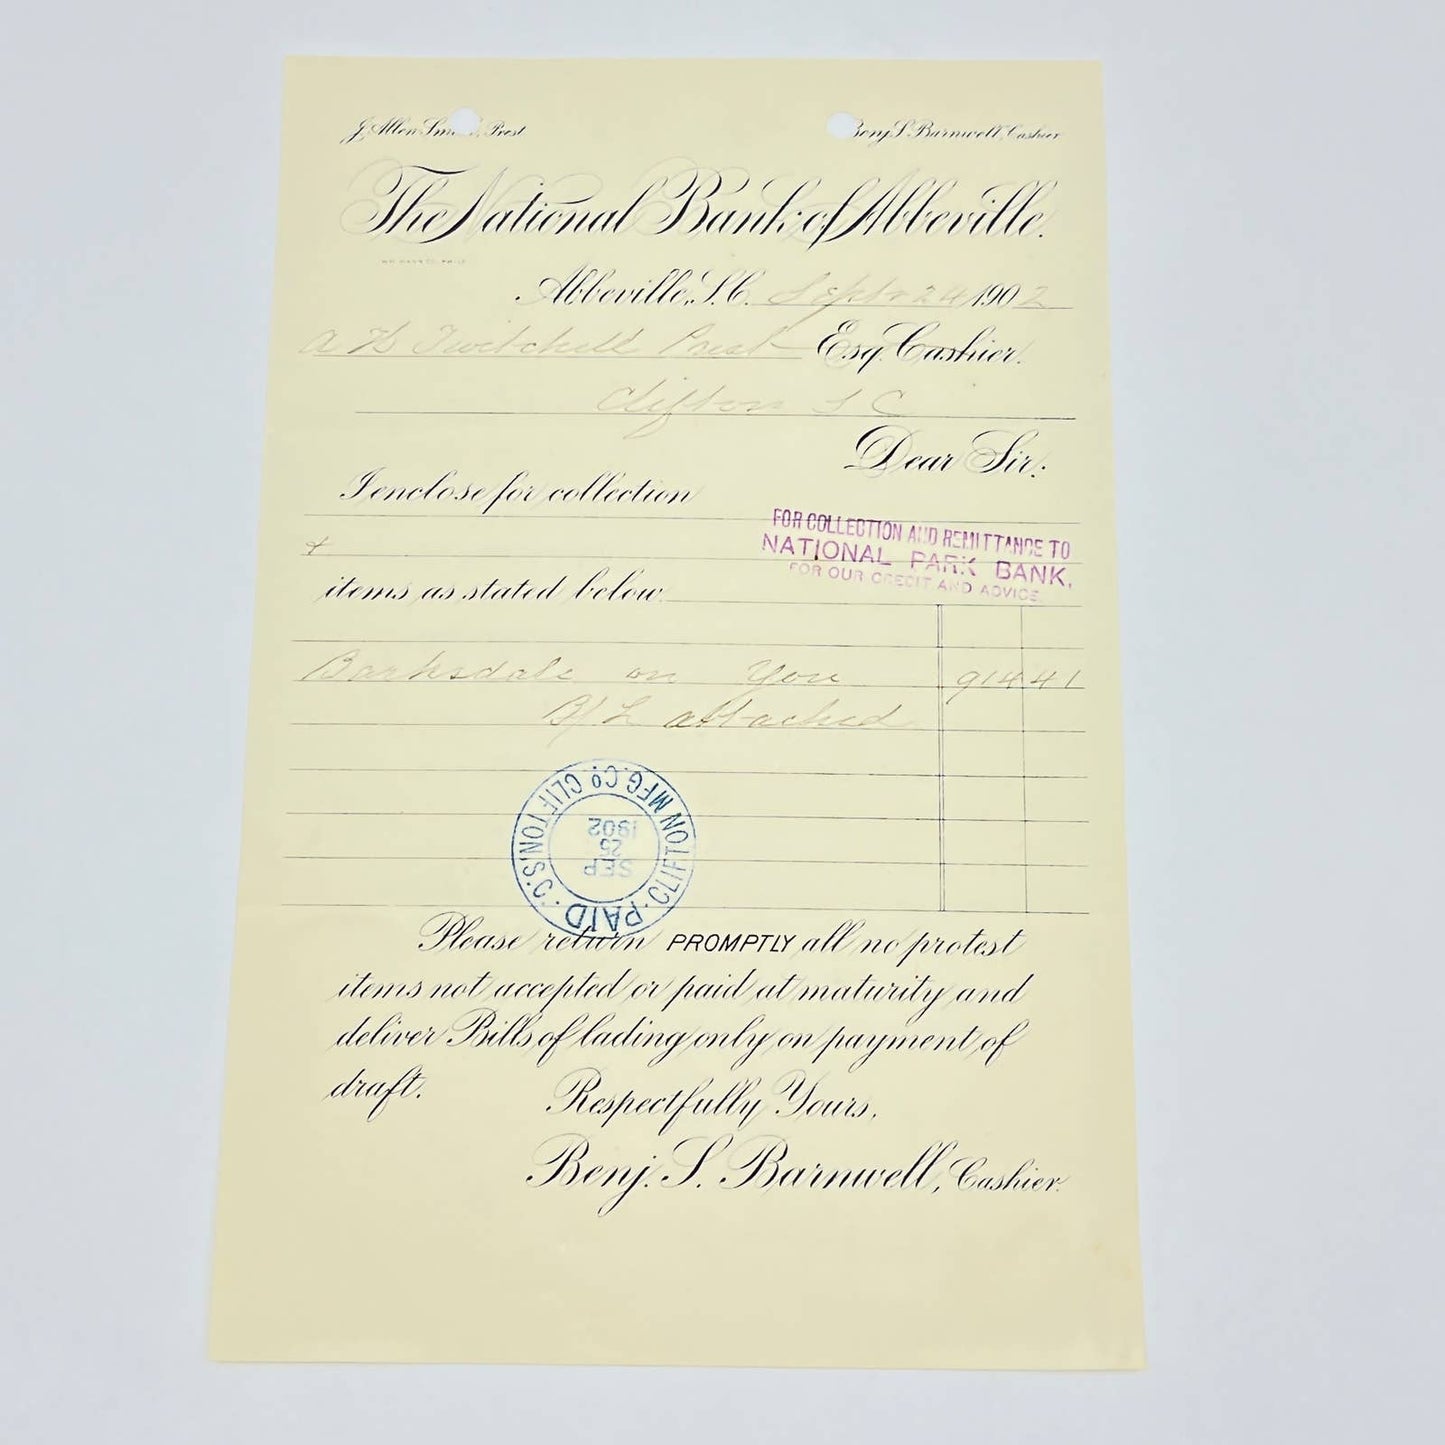 J. Allen Smith, Prest.
Benj. S. Barnwell, Cashier
The National Bank of Abbeville.
Abbeville, S.C. Sept 24 1902
A H Twitchell Prest Esq. Cashier.
Clifton S C
Dear Sir:
I enclose for collection
FOR COLLECTION AND REMITTANCE TO
NATIONAL PARK BANK,
FOR OUR CREDIT AND ADVICE.
items as stated below.
Barksdale on You 914 41
B/L attached
CLIFTON MFG. CO. CLIFTON, S.C.
SEP
25
1902
PAID
Please return PROMPTLY all no protest
items not accepted or paid at maturity and
deliver Bills of lading only on payment of
draft.
Respectfully Yours,
Benj. S. Barnwell, Cashier.